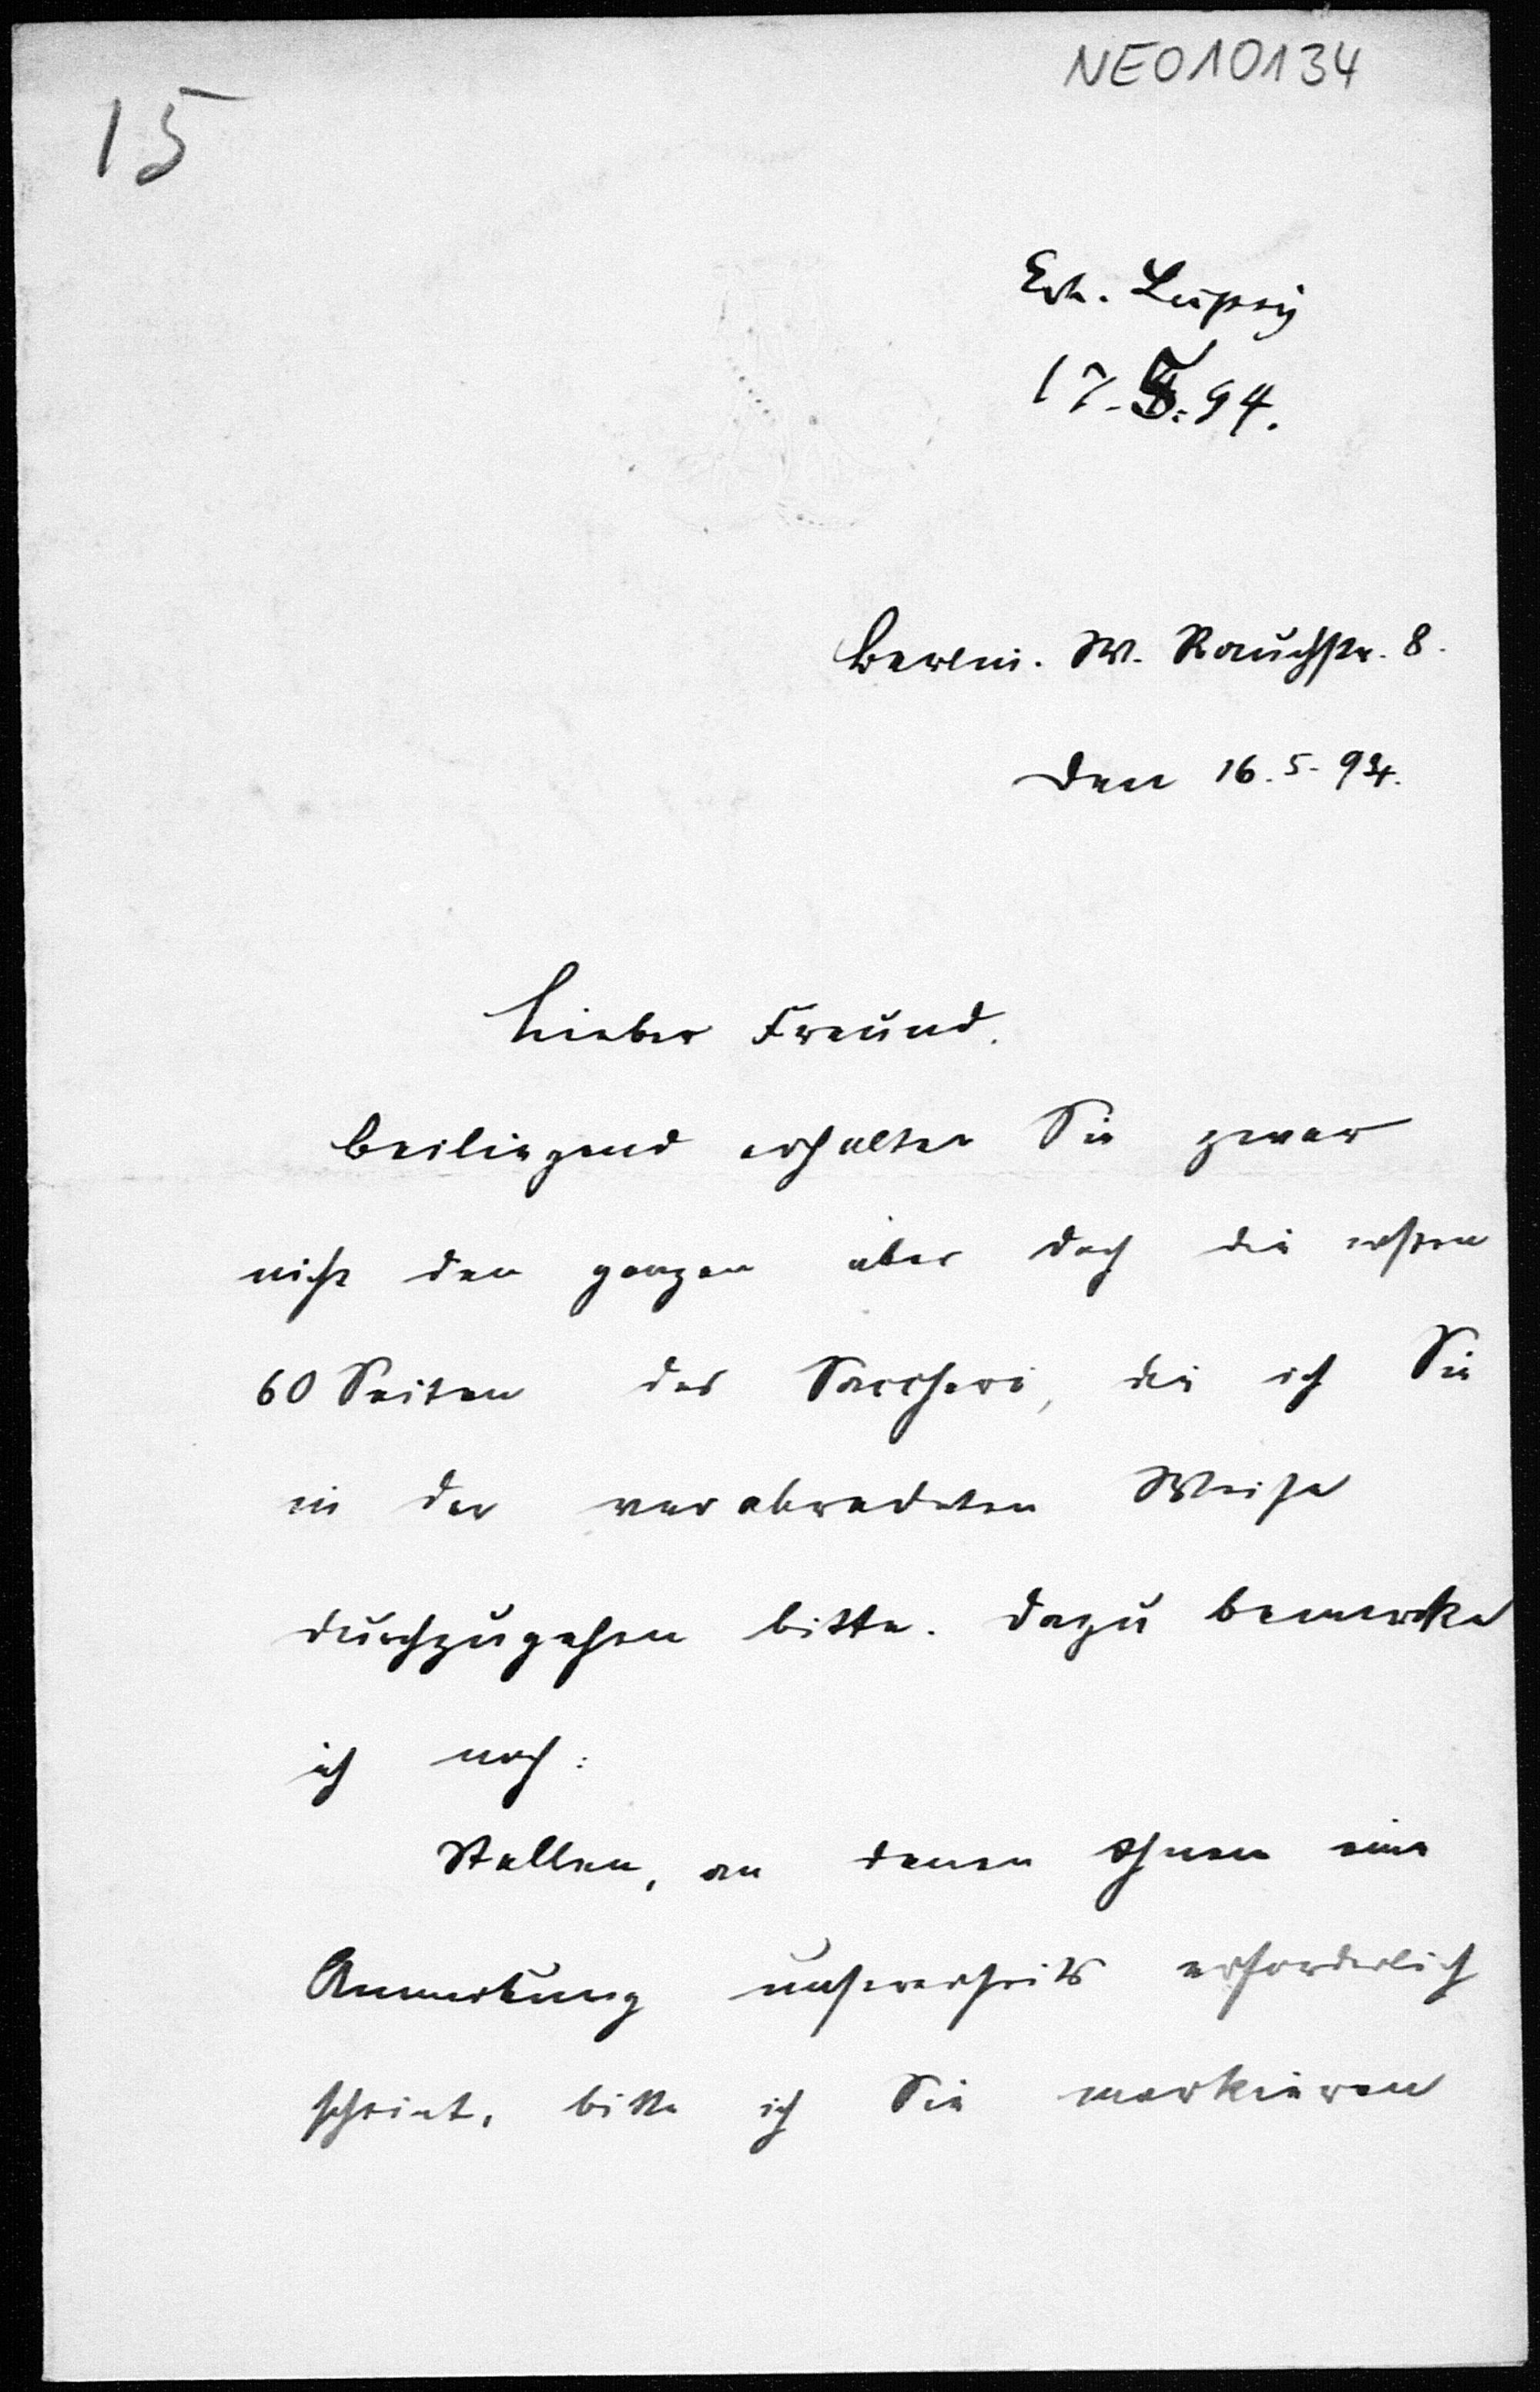 NE010134
15
Erh. Leipzig
17.5.94.
Berlin. W. Rauchstr. 8.
den 16.5.94.
Lieber Freund.
Beiliegend erhalten Sie zwar
nicht den ganzen aber doch die ersten
60 Seiten des Saccheri, die ich Sie
in der verabredeten Weise
durchzugehen bitte. Dazu bemerke
ich noch:
Stellen, an denen Ihnen eine
Anmerkung unsererseits erforderlich
scheint, bitte ich Sie markieren